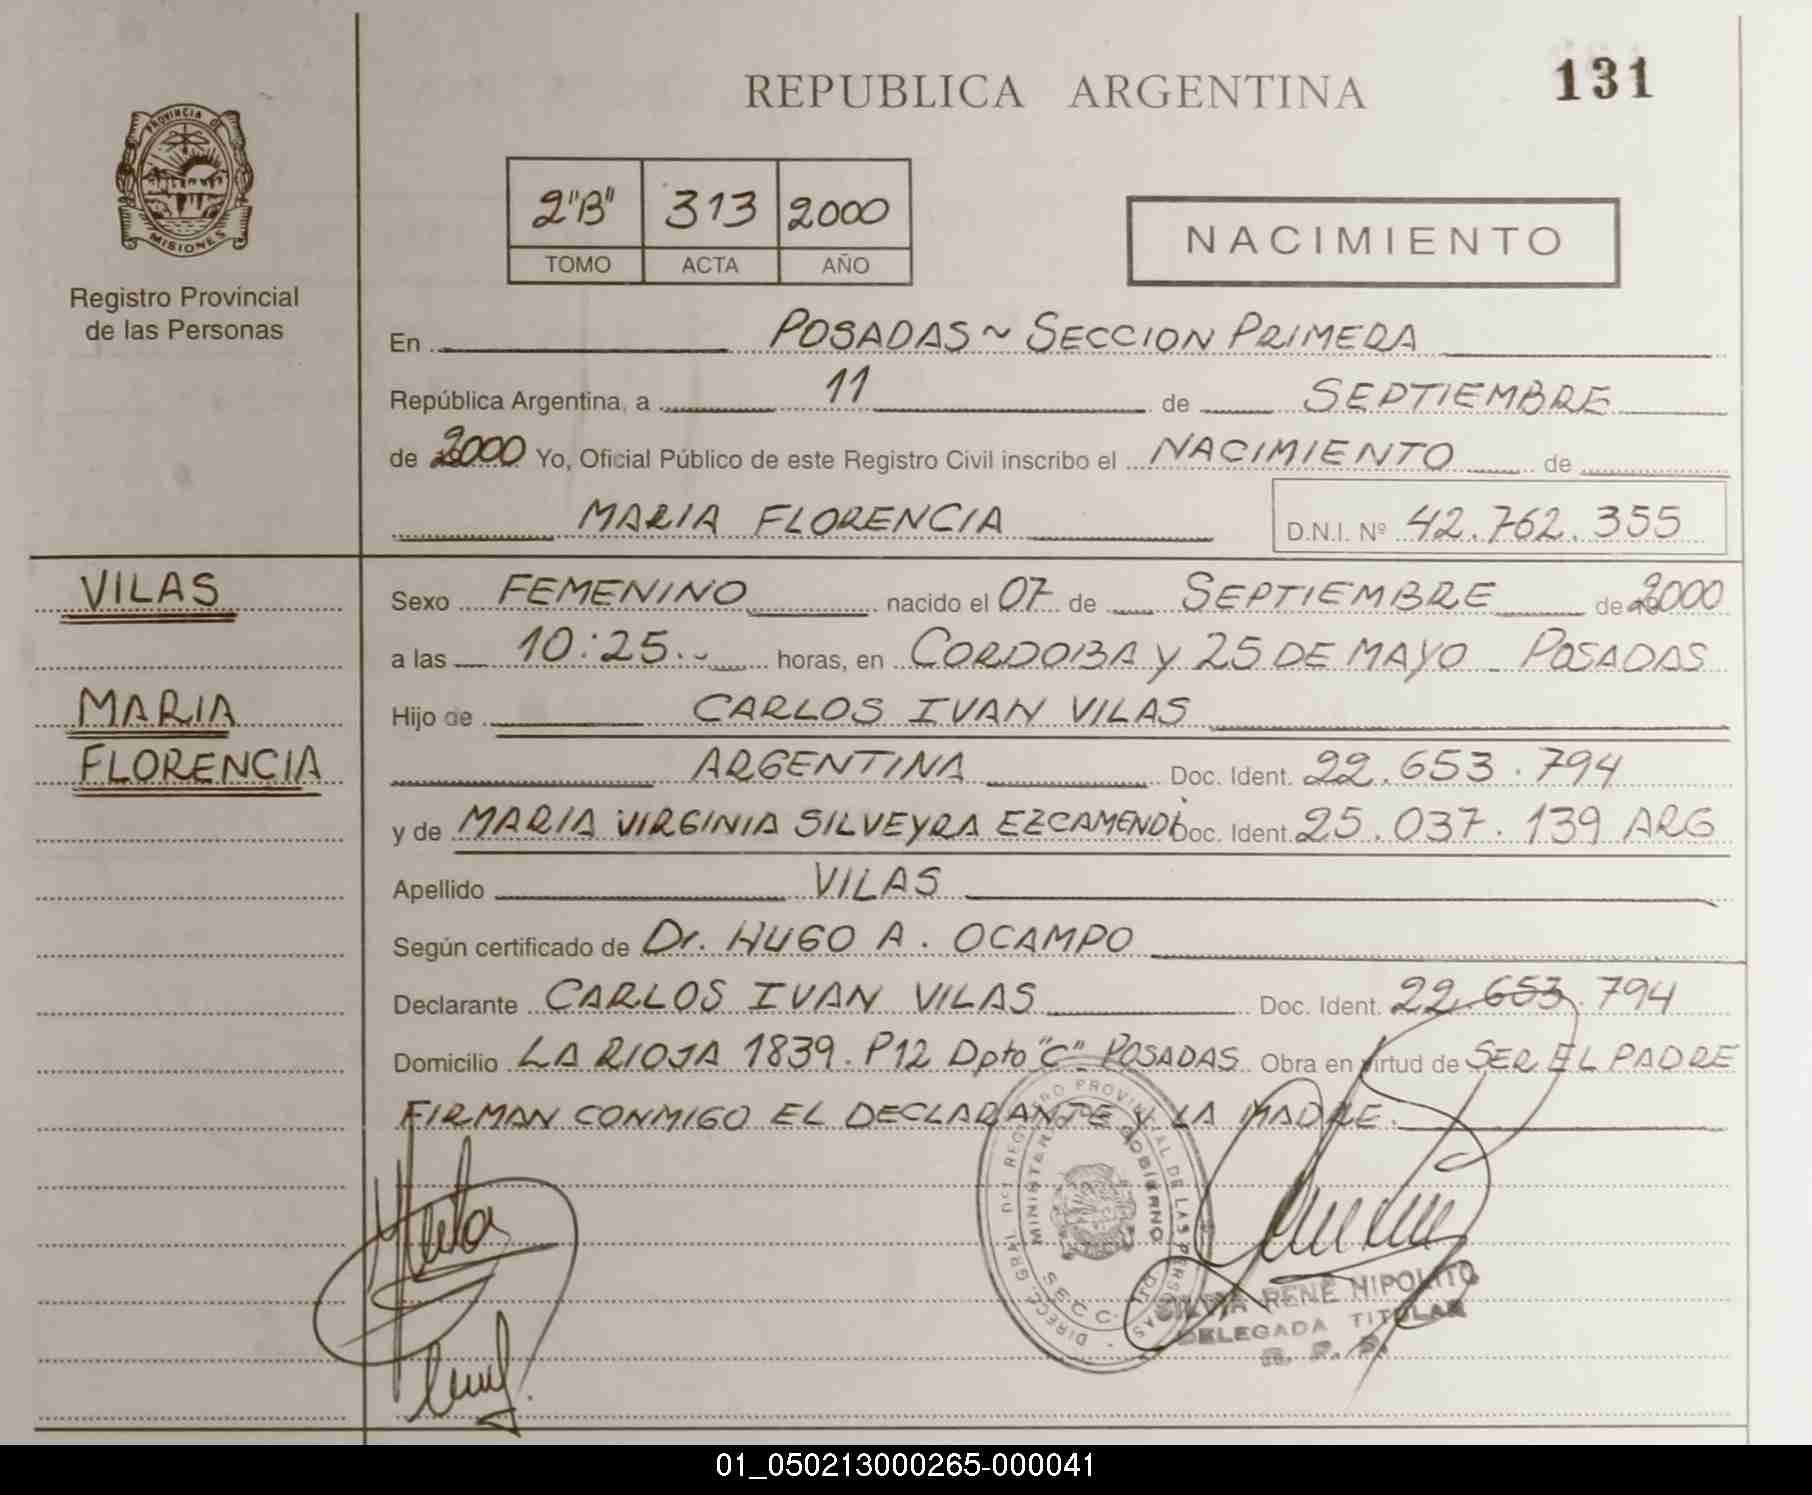 131
REPUBLICA ARGENTINA
PROVINCIA DE
MISIONES
Registro Provincial
de las Personas
2"B" 313 2000
TOMO ACTA AÑO
NACIMIENTO
En POSADAS ~ SECCION PRIMERA
República Argentina, a 11 de SEPTIEMBRE
de 2000 Yo, Oficial Público de este Registro Civil inscribo el NACIMIENTO de
MARIA FLORENCIA D.N.I. Nº 42.762.355
VILAS
MARIA
FLORENCIA
Sexo FEMENINO nacido el 07 de SEPTIEMBRE de 2000
a las 10:25.- horas, en CORDOBA Y 25 DE MAYO - POSADAS
Hijo de CARLOS IVAN VILAS
ARGENTINA Doc. Ident. 22.653.794
y de MARIA VIRGINIA SILVEYRA EZCAMENDI Doc. Ident. 25.037.139 ARG
Apellido VILAS
Según certificado de Dr. HUGO A. OCAMPO
Declarante CARLOS IVAN VILAS Doc. Ident. 22.653.794
Domicilio LA RIOJA 1839. P12 Dpto "C" POSADAS Obra en virtud de SER EL PADRE
FIRMAN CONMIGO EL DECLARANTE Y LA MADRE.
DIRECC. GRAL. DEL REGISTRO PROVINCIAL DE LAS PERSONAS
MINISTERIO DE GOBIERNO
SECC.
SILVIA RENE HIPOLITO
DELEGADA TITULAR
R. P. P.
01_050213000265-000041